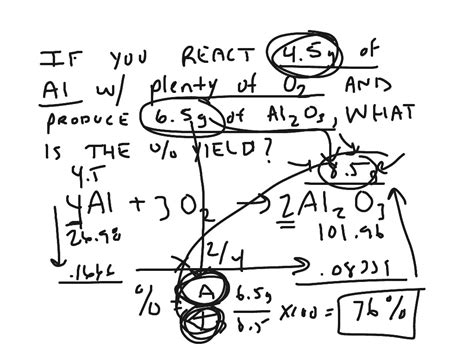 IF YOU REACT 4.5g of
Al w/ plenty of O2 AND
PRODUCE 6.5g of Al2O3, WHAT
IS THE % YIELD?
4.5 8.5g
4Al + 3O2 → 2Al2O3
26.98 101.96
2/4
% = A 6.5g x100 = 76%
T 8.5